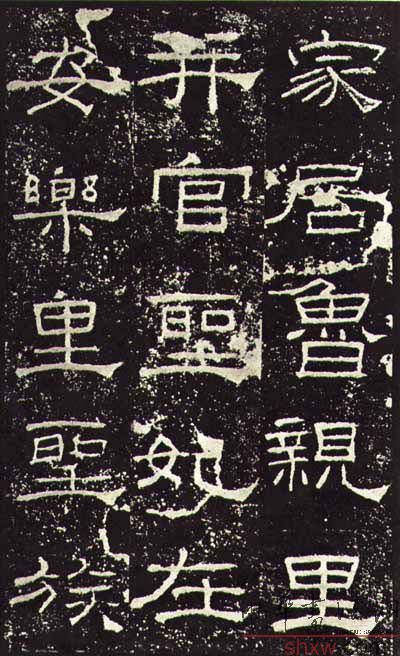 家居魯親里
并官聖妃在
安樂里聖族
shxw